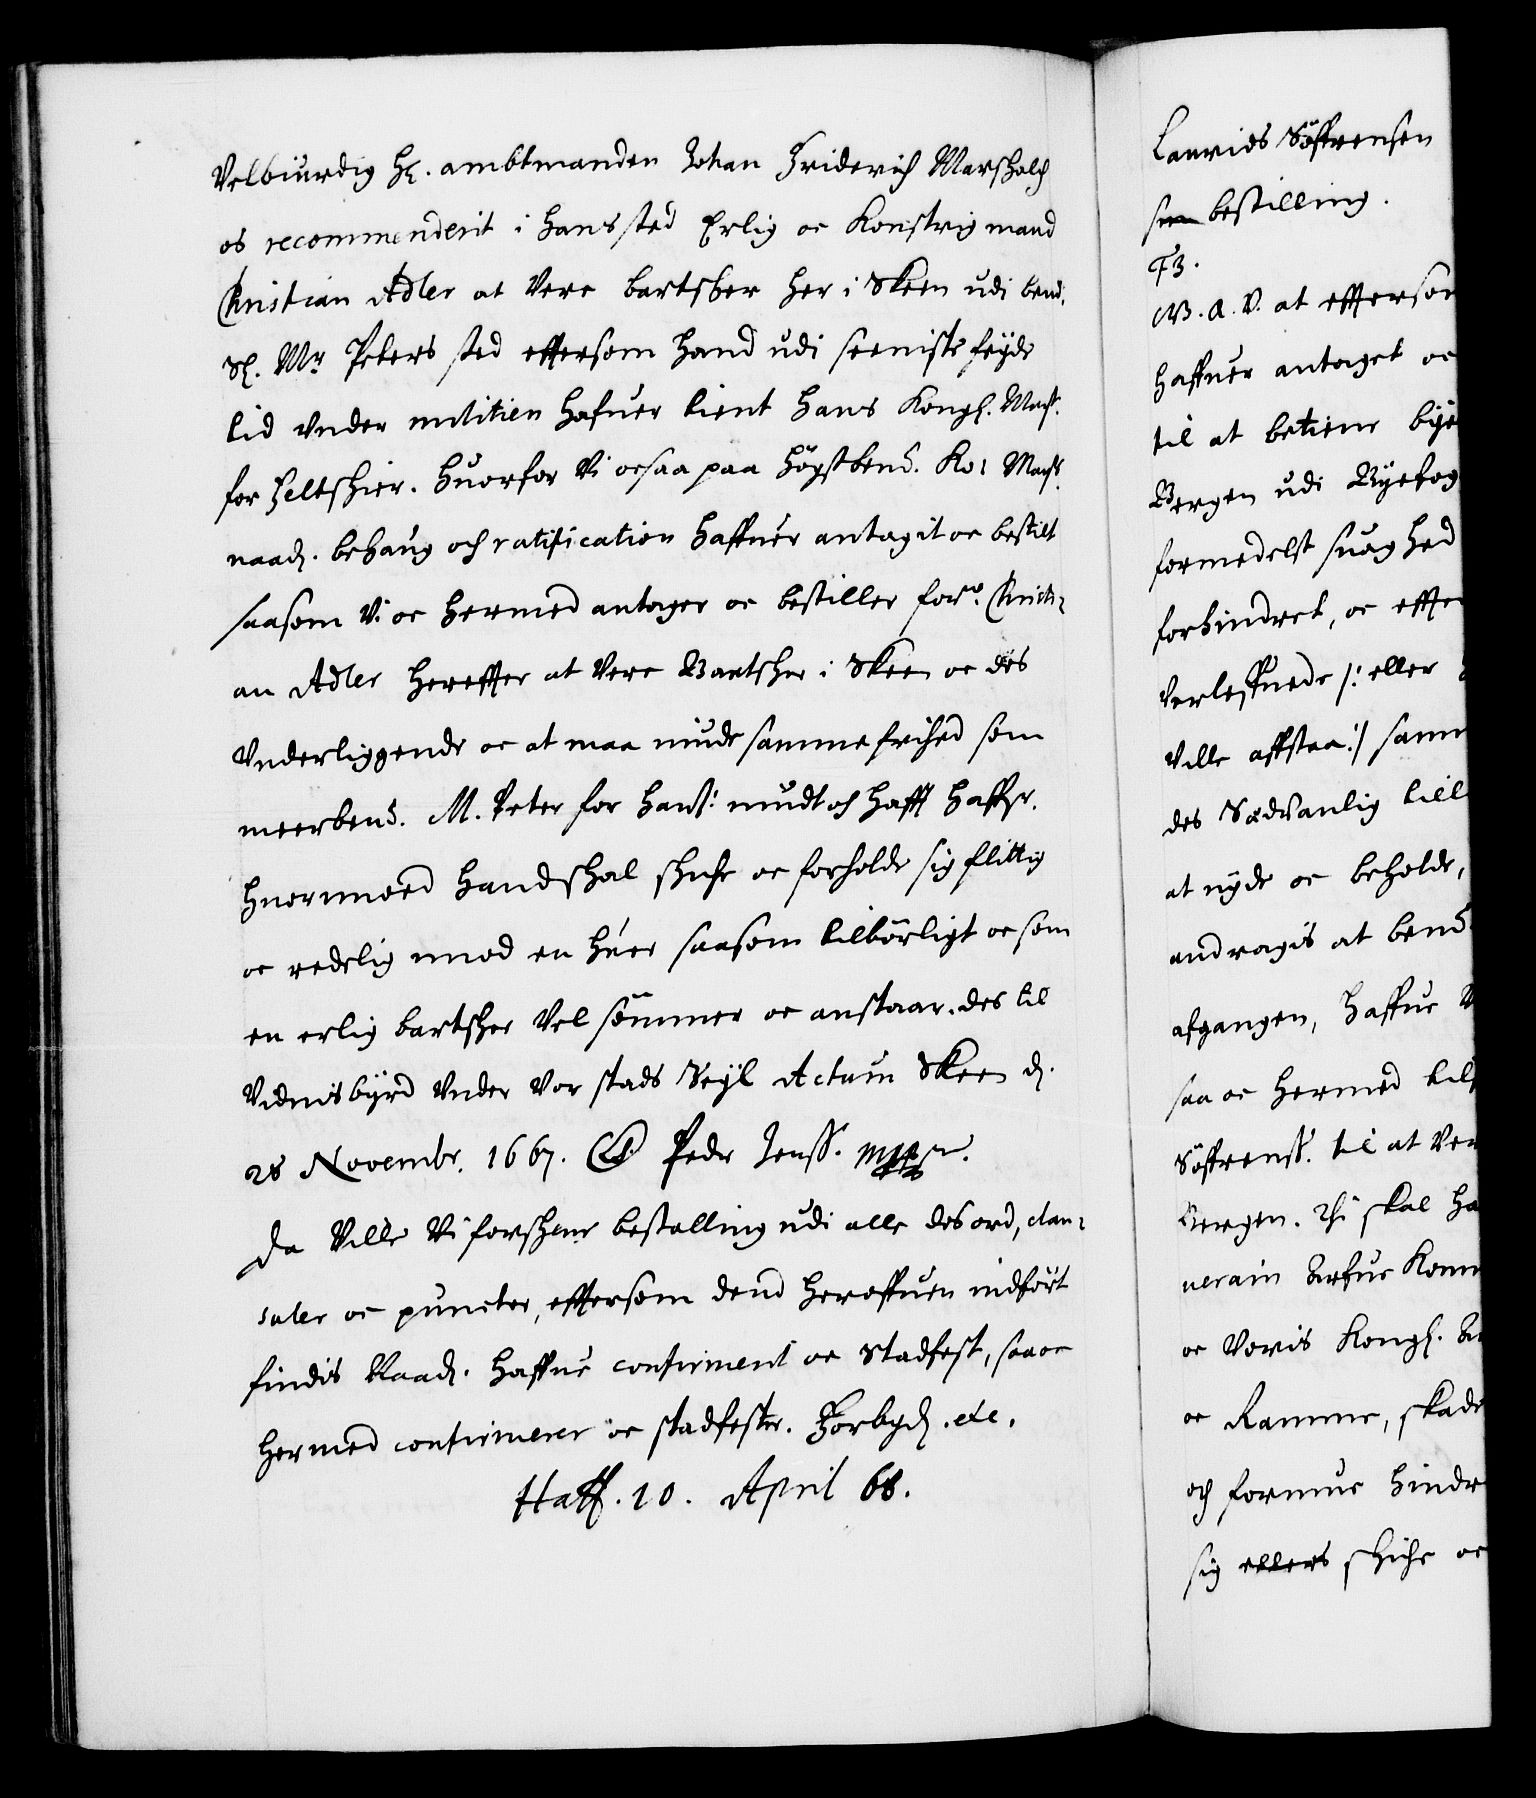 Velbiurdig Hr. ambtmanden Johan Friderich Marschalch
os recommenderit i hans sted Erlig oc Konstrig mand
Christian Adler at Vere bartsker her i Skeen udi bemd.
Sl. Mr Peters sted effersom hand udi seeniste feyde
tid Vnder militien hafuer tient Hans Kongl. Mayt.
for Feltskier. huorfor Vi ocsaa paa högstbemd. Ko: Mayts.
naad. behaug och ratification haffuer antagit oc bestilt
saasom Vi oc hermed antager oc bestiller forn. Christi-
an Adler hereffter at Vere Bartsker i Skeen oc des
Vnderliggende oc at maa niude samme frihed som
meerbemd. M. Peter for hans: niudt och hafft haffer.
huormoed hand skal skicke oc forholde sig flittig
oc redelig imod en huer saasom tilbörligt oc som
en erlig bartsker Vel sömmer oc anstaar. des til
Vidnisbyrd Vnder Vor stads Seyl Actum Skeen d.
28 Novembr. 1667. Peder Jenss.
Da Ville Vi forskrne bestalling udi alle des ord, clau-
suler oc puncter, effersom dend heroffuen indfört
findis Naad. haffue confirmerit oc Stadfest, saa oc
hermed confirmerer oc stadfester. Forbyd. etc.
Haff. 10. April 68.
Laurids Söffrensen
bestilling.
F3.
G. A. V. at effersom
haffuer antaget oc
til at betiene bye
Bergen udi Byefog
formedelst suaghed
forhindret, oc effer
Verleffnede /: eller
Ville affstaa :/ samm
des Sædvanlig till
at nyde oc beholde,
andragis at bemd.
afgangen, haffue
saa oc hermed till
Söffrenss. til at Ver
Bergen. Thi skal ha
uerain Arfue Konn
oc Voris Kongl.
oc Ramme, skade
och formue hindr
sig ellers skicke oc